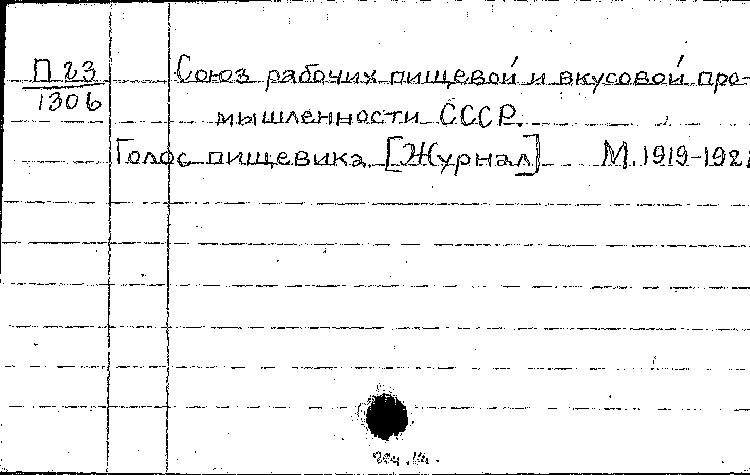 П 23
1306
Союз рабочих пищевой и вкусовой про-
мышленности СССР.
Голос пищевика [Журнал] М. 1919-192